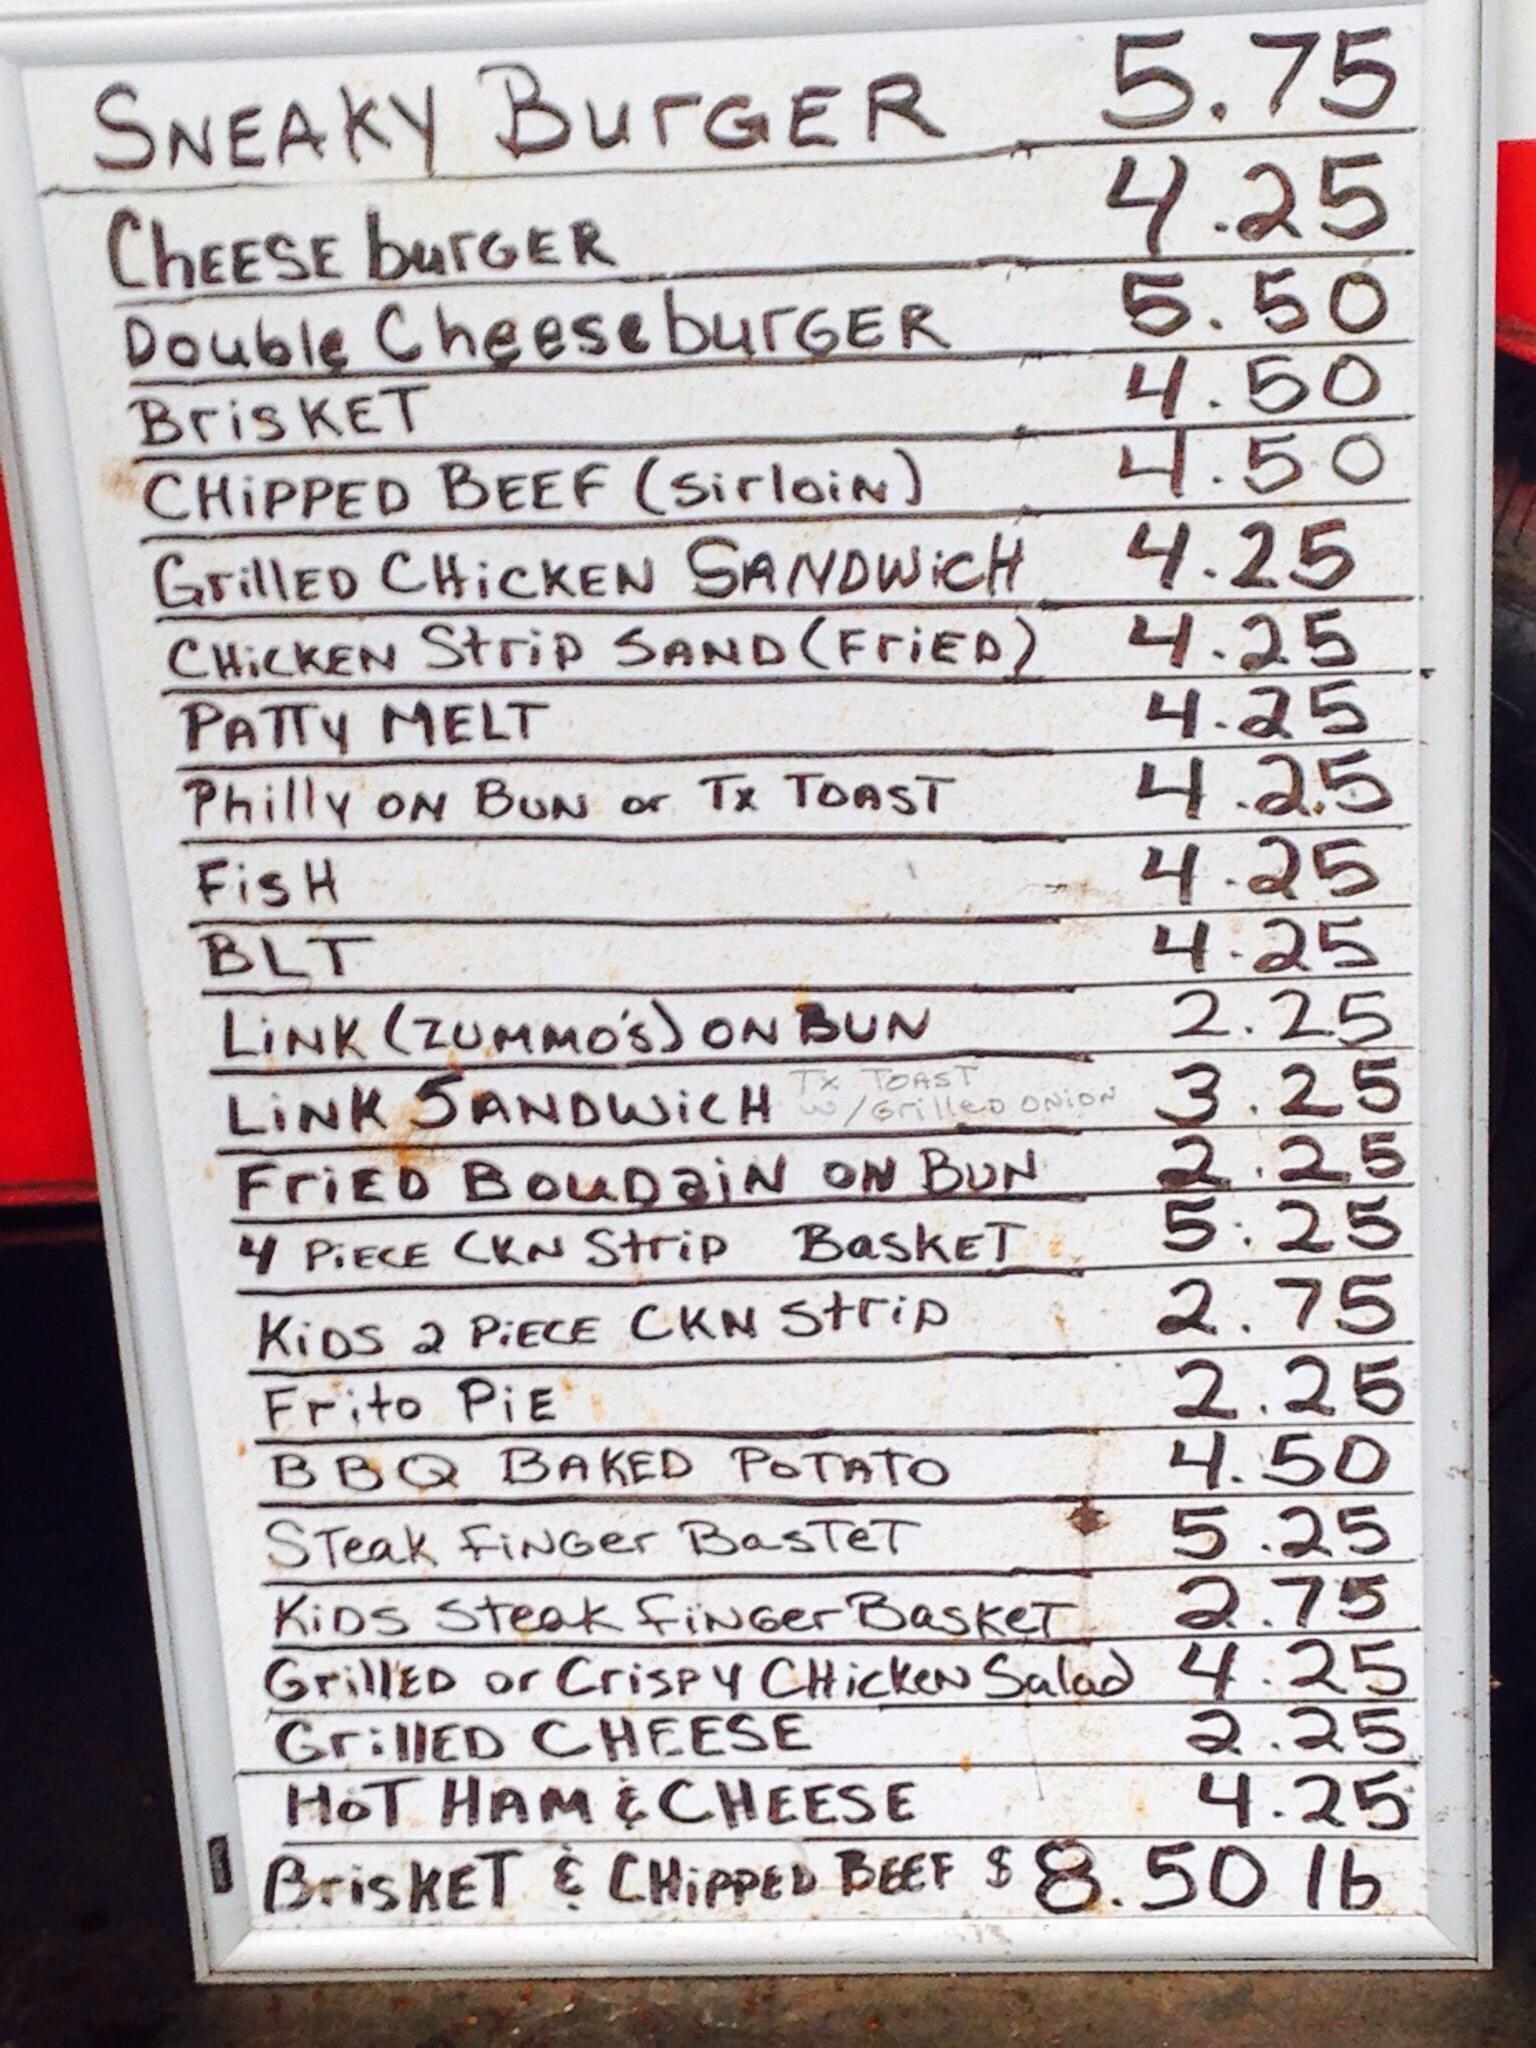 SNEAKY BURGER 5.75
CHEESE BURGER 4.25
Double CheeseBURGER 5.50
BRISKET 4.50
CHIPPED BEEF (Sirloin) 4.50
Grilled CHICKEN SANDWICH 4.25
CHICKEN Strip SAND (FRIED) 4.25
PATTY MELT 4.25
Philly ON BUN or Tx TOAST 4.25
FISH 4.25
BLT 4.25
LINK (ZUMMO'S) ON BUN 2.25
LINK SANDWICH TX TOAST 3.25
W/Grilled ONION
FRIED BOUDAIN ON BUN 2.25
4 PIECE CKN Strip BASKET 5.25
KIDS 2 PIECE CKN Strip 2.75
Frito PIE 2.25
BBQ BAKED POTATO 4.50
STeak FINGER BasTeT 5.25
KIDS Steak FINGER BaskeT 2.75
GrillED or Crispy CHicKEN Salad 4.25
GrillED CHEESE 2.25
HOT HAM & CHEESE 4.25
BRISKET & CHIPPED BEEF $8.50 lb